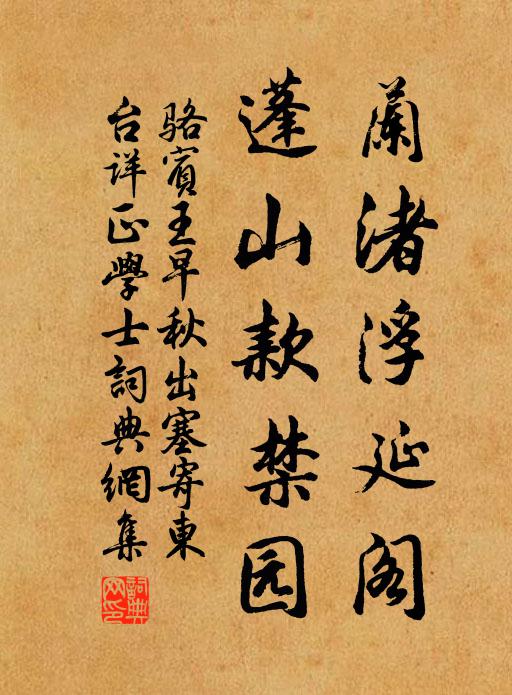 蘭渚浮延阁
蓬山款禁园
骆賓王早秋出塞寄東
台详正學士詞典網集
詞典網印